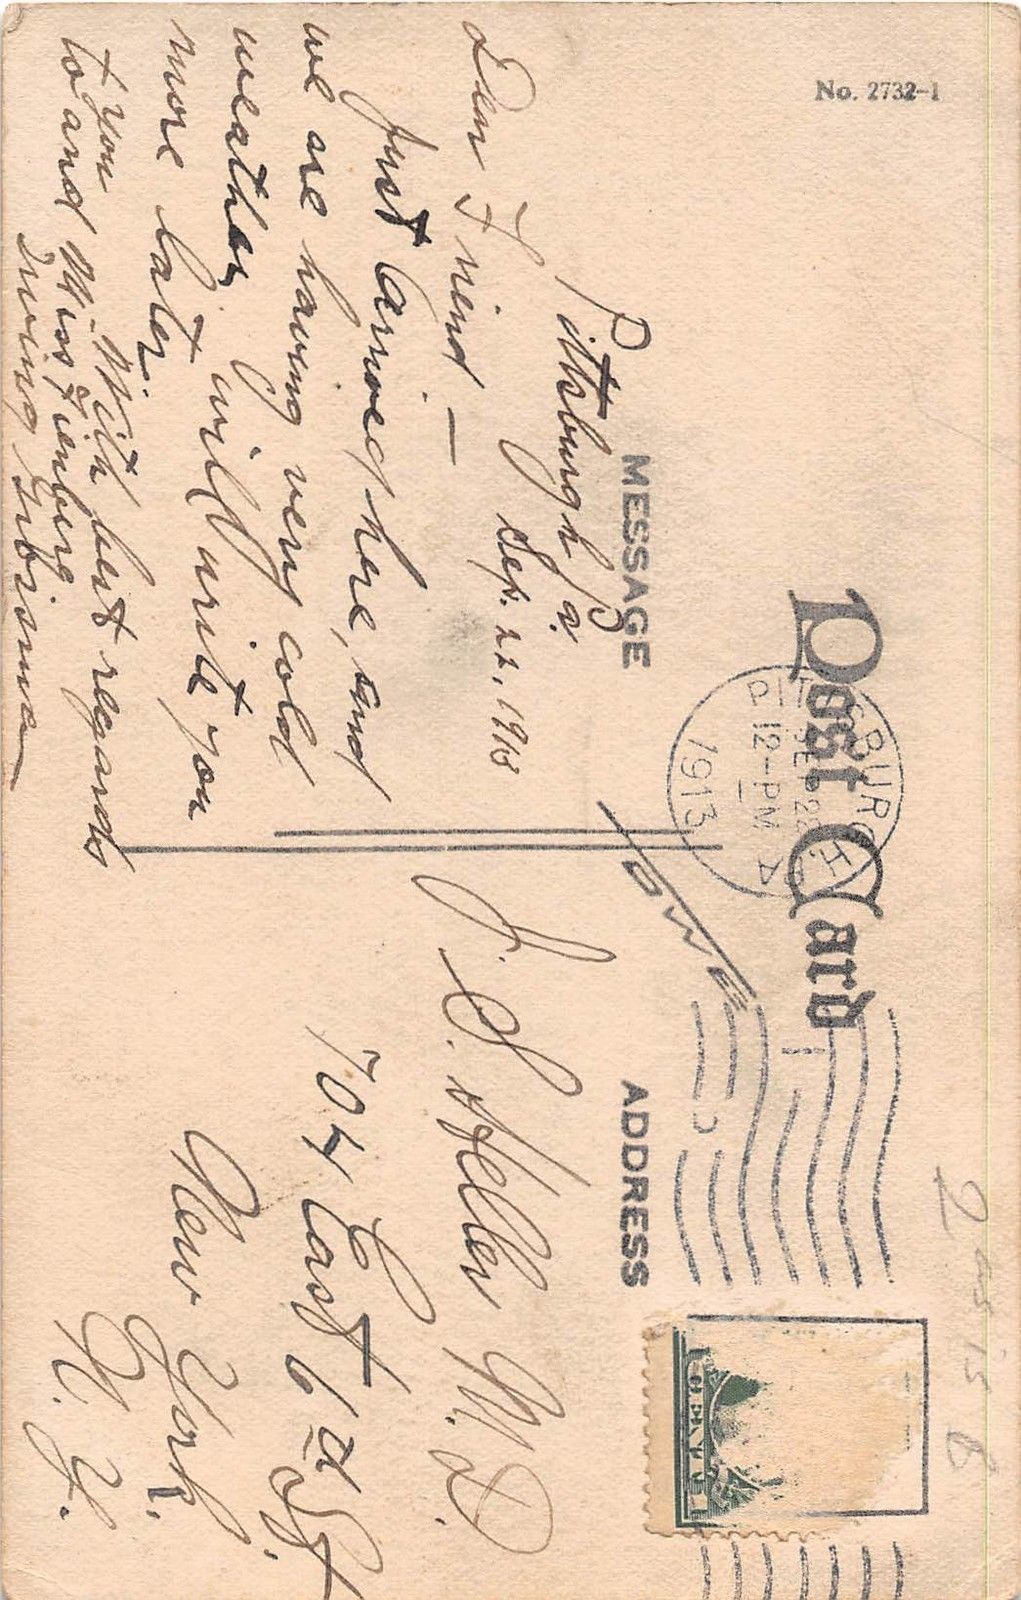 No. 2732-1
Post Card
MESSAGE
ADDRESS
PITTSBURGH
SEP 22
12-PM
1913
Pittsburgh Pa.
Sep. 22, 1913
Dear Friend. —
Just arrived here, and
we are having very cold
weather, will write you
more later.
With best regards
to you
to and Miss
Irving
J. S. Heller M. D.
704 East 6th St.
New York.
N. Y.
1 CENT 1